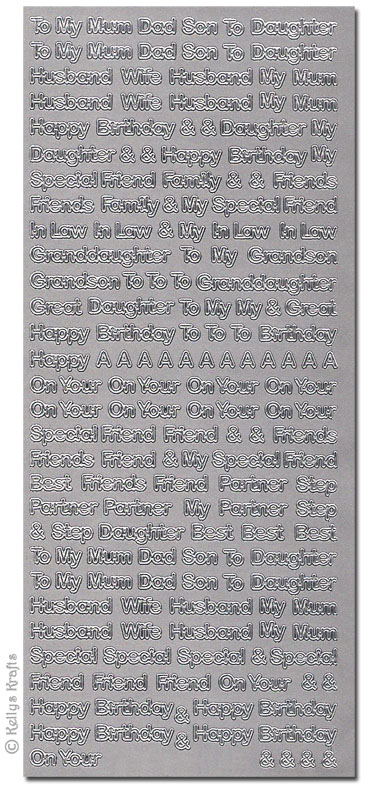 To My Mum Dad Son To Daughter
To My Mum Dad Son To Daughter
Husband Wife Husband My Mum
Husband Wife Husband My Mum
Happy Birthday & & Daughter My
Daughter & & Happy Birthday My
Special Friend Family & & Friends
Friends Family & My Special Friend
In Law In Law & My In Law In Law
Granddaughter To My Grandson
Grandson To To To Granddaughter
Great Daughter To My My & Great
Happy Birthday To To To Birthday
Happy A A A A A A A A A A A A
On Your On Your On Your On Your
On Your On Your On Your On Your
Special Friend Friend & & Friends
Friends Friend & My Special Friend
Best Friends Friend Partner Step
Partner Partner My Partner Step
& Step Daughter Best Best Best
To My Mum Dad Son To Daughter
To My Mum Dad Son To Daughter
Husband Wife Husband My Mum
Husband Wife Husband My Mum
Special Special Special & Special
Friend Friend Friend On Your & &
Happy Birthday & Happy Birthday
Happy Birthday & Happy Birthday
On Your & & & &
© Kellys Krafts